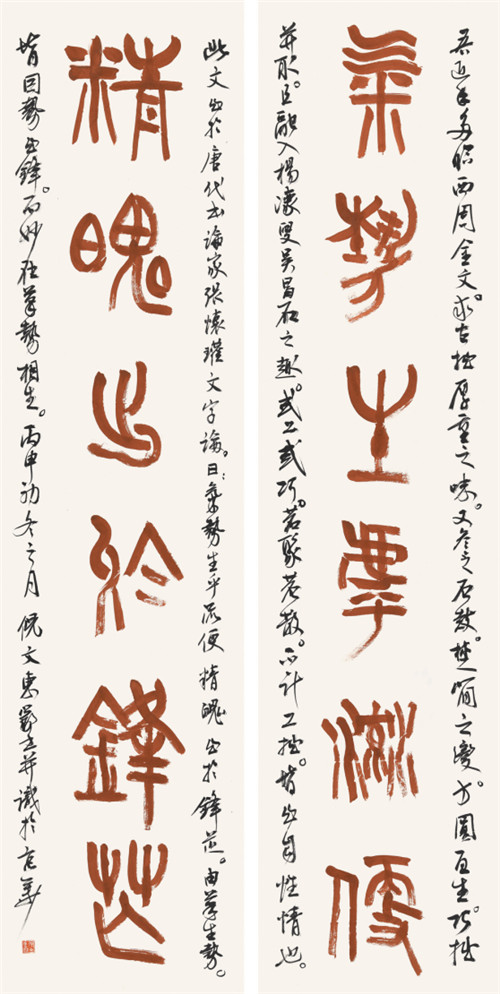 吾近年多臨西周金文。求古拙厚重之味。又參之石鼓。楚簡之變。方圓互生。巧拙
氣勢生乎流便
并取。且融入楊濠叟吳昌石之趣。或工或巧。若聚若散。不計工拙。皆出自性情也。
此文出於唐代書論家張懷瓘文字論。曰：氣勢生乎流便精魄出於鋒芒。由筆生勢。
精魄出於鋒芒
皆因勢出鋒。而妙在筆勢相生。丙申初冬之月倪文東并識於京華